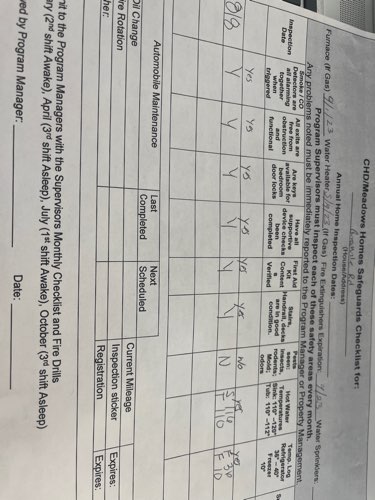 CHD/Meadows Homes Safeguards Checklist for:
(House/address)
Annual Home Inspection Dates:
Furnace (If Gas) 9/1/23 Water Heater (If Gas) Fire Extinguishers Expiration: 9/23 Water Sprinklers:
Program Supervisors must inspect each of these safety areas every month.
Any problems noted must be immediately reported to the Program Manager or Property Management
Inspection Date
Smoke / CO Detectors are all alarming together when triggered
All exits are free from obstruction and functional
Are keys available for bedroom door locks
Have all supportive device checks been completed
First Aid Kit Content s Verified
Stairs, Handrail, decks are in good condition.
Pests seen: insects, rodents; Mold; odors
Hot Water Temperatures Sink: 110°-120° Tub: 110°-112°
Temp. Log Refrigerator 36° - 40° Freezer 10°
yes yes yes yes yes yes No yes yes
8/8 Y Y Y Y Y Y N S 116
Automobile Maintenance
Last Completed
Next Scheduled
Current Mileage
Oil Change
Inspection sticker Expires:
ire Rotation
Registration Expires:
her:
nit to the Program Managers with the Supervisors Monthly Checklist and Fire Drills
ary (2nd shift Awake), April (3rd shift Asleep), July (1st shift Awake), October (3rd shift Asleep)
ved by Program Manager:
Date: